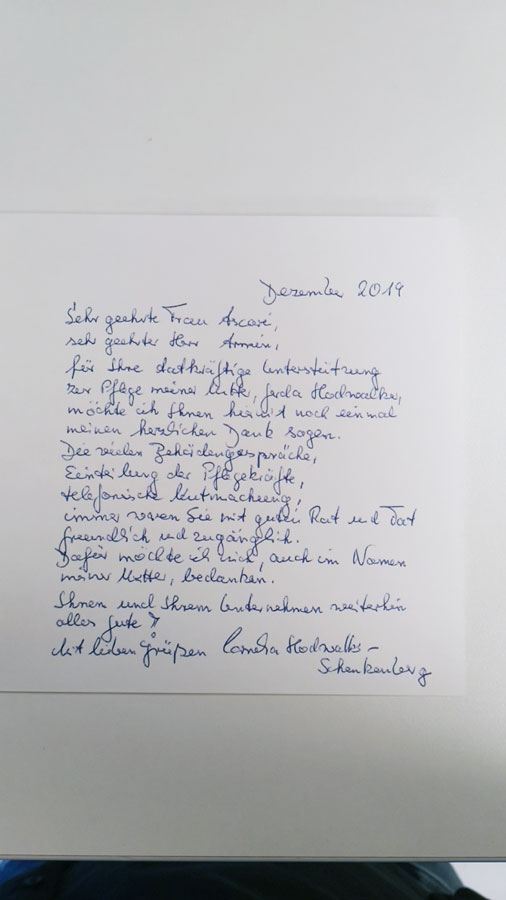 Dezember 2019
Sehr geehrte Frau Ascari,
sehr geehrter Herr Armin,
für Ihre datkräftige Unterstützung
zur Pflege meiner Mutter, Gerda
möchte ich Ihnen hiermit noch einmal
meinen herzlichen Dank sagen.
Die vielen Behördengespräche,
Einteilung der Pflegekräfte,
telefonische Mutmachung,
immer waren Sie mit guten Rat und Tat
freundlich und zugänglich.
Dafür möchte ich mich, auch im Namen
meiner Mutter, bedanken.
Ihnen und Ihrem Unternehmen weiterhin
alles Gute!
Mit lieben Grüßen Cornelia
Schenkenberg